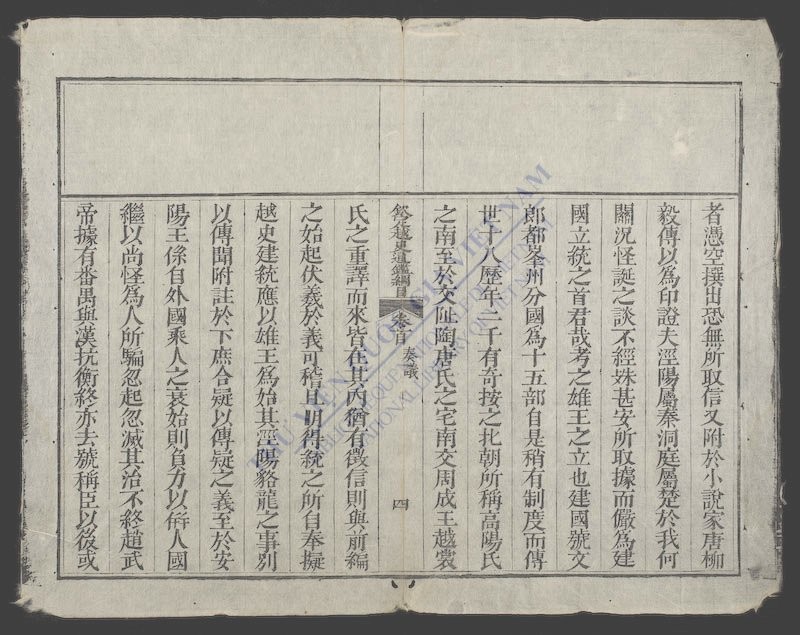 者憑空撰出恐無所取信又附於小說家唐柳
毅傳以為印證夫涇陽屬秦洞庭屬楚於我何
關況怪誕之談不經殊甚安所取據而儼為建
國立統之首君哉考之雄王之立也建國號文
郎都峯州分國為十五部自是稍有制度而傳
世十八歷年二千有奇按之北朝所稱高陽氏
之南至於交阯陶唐氏之宅南交周成王越裳
欽定越史通鑑綱目 卷首 奏議 四
氏之重譯而來皆在其內猶有徵信則與前編
之始起伏羲於義可稽且明得統之所自奉擬
越史建統應以雄王為始其涇陽貉龍之事別
以傳聞附註於下庶合疑以傳疑之義至於安
陽王係自外國乘人之衰始則負力以併人國
繼以尚怪為人所騙忽起忽滅其治不終趙武
帝據有番禺與漢抗衡終亦去號稱臣以後或
THƯ VIỆN QUỐC GIA VIỆT NAM
BIBLIOTHÈQUE NATIONALE DU VIETNAM
NATIONAL LIBRARY OF VIETNAM